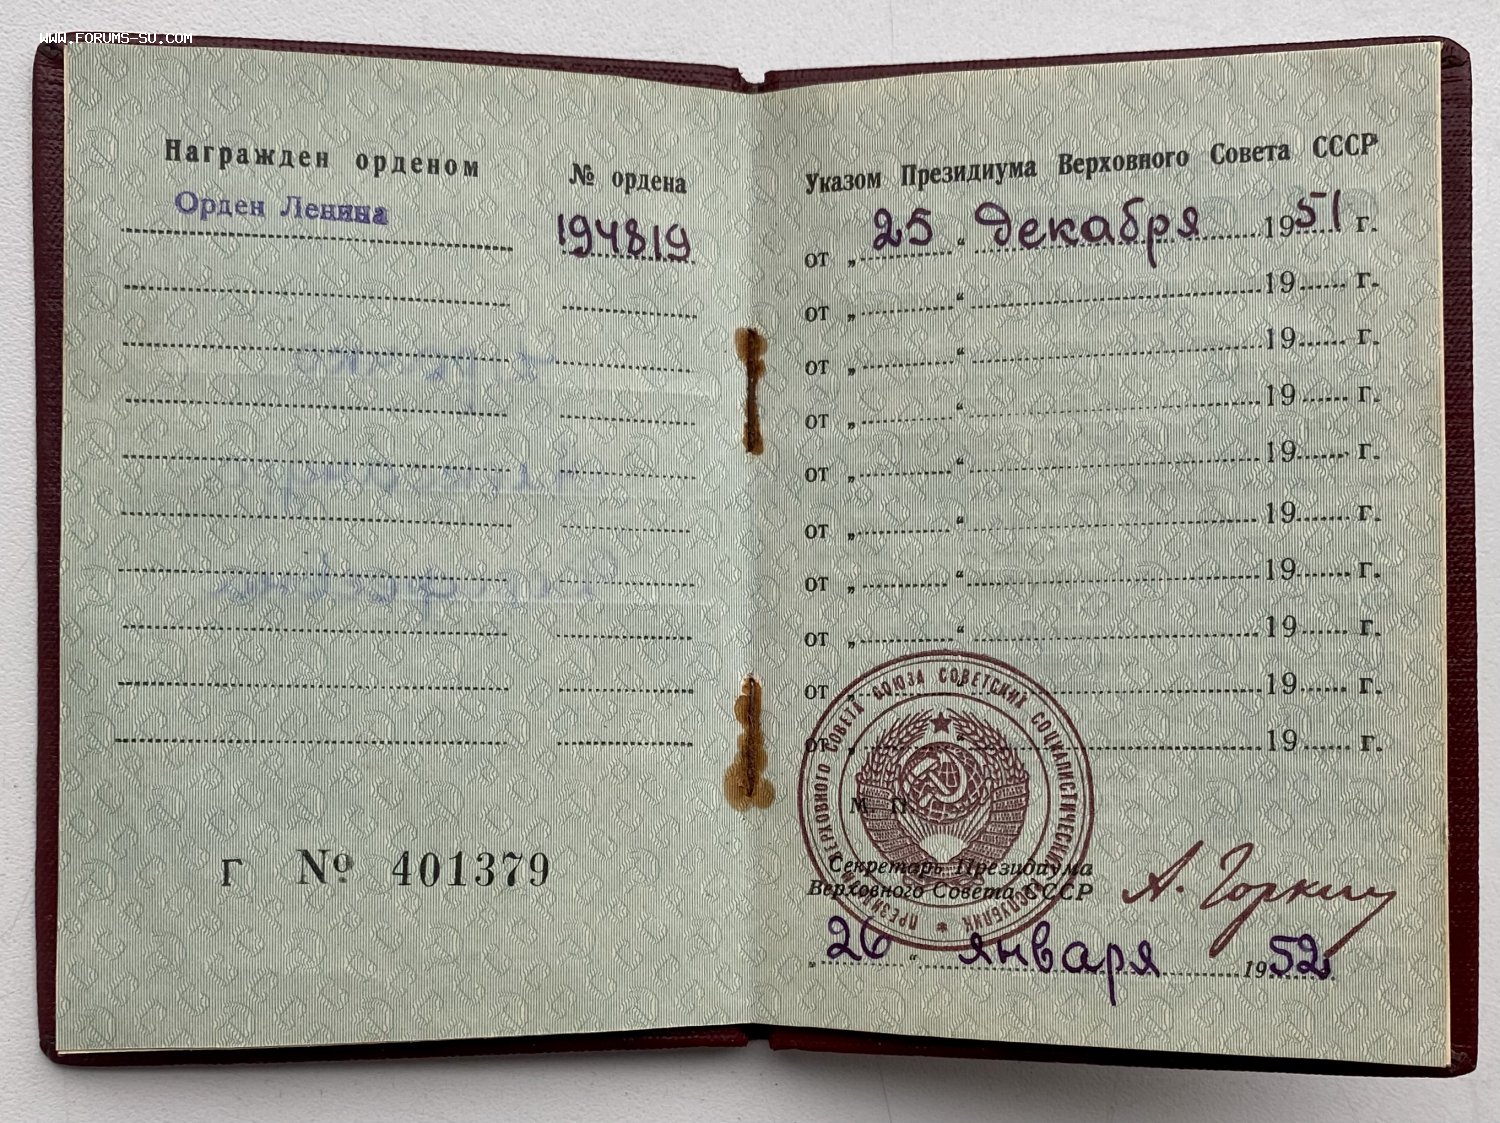 WWW.FORUMS-SU.COM
Награжден орденом № ордена
Орден Ленина 194819
Г № 401379
Указом Президиума Верховного Совета СССР
от „ 25 “ декабря 1951 г.
от „ “ 19 г.
от „ “ 19 г.
от „ “ 19 г.
от „ “ 19 г.
от „ “ 19 г.
от „ “ 19 г.
от „ “ 19 г.
от „ 19 г.
от „ 19 г.
ПРЕЗИДИУМ ВЕРХОВНОГО СОВЕТА СОЮЗА СОВЕТСКИХ СОЦИАЛИСТИЧЕСКИХ РЕСПУБЛИК
М. П.
Секретарь Президиума
Верховного Совета СССР
А. Горкин
„ 26 “ января 1952 г.